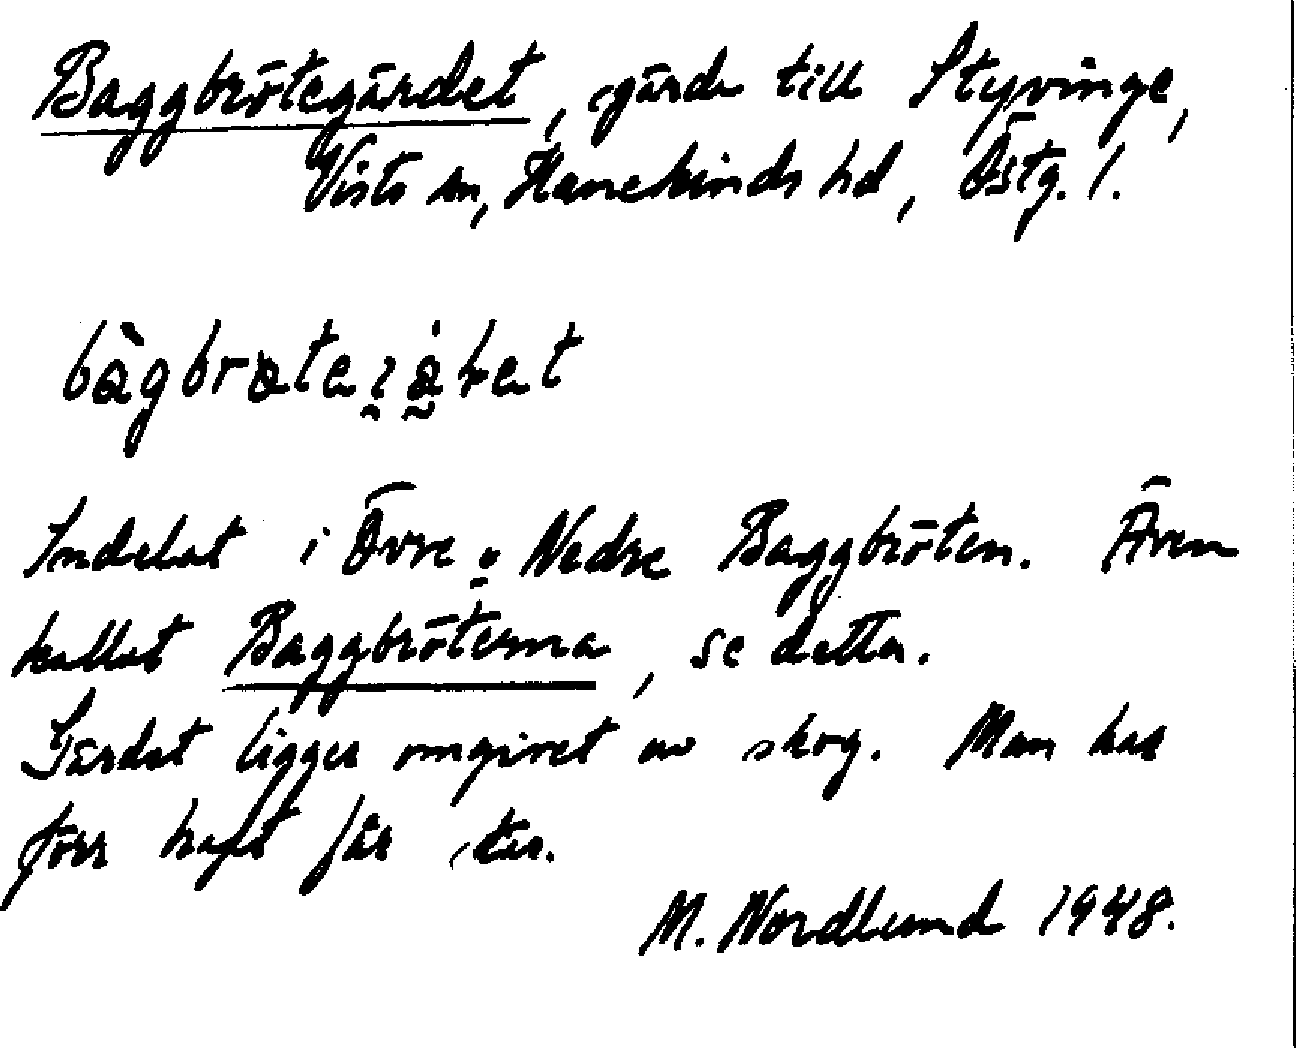 Baggbrötegärdet, gärde till Styvinge,
Vists sn, Hanekinds hd, Östg. l.
bàgbrøte
Indelat i Övre o. Nedre Baggbröten. Även
kallat Baggbröterna, se detta.
Gärdet ligger omgivet av skog. Man har
förr haft får där.
M. Nordlund 1948.